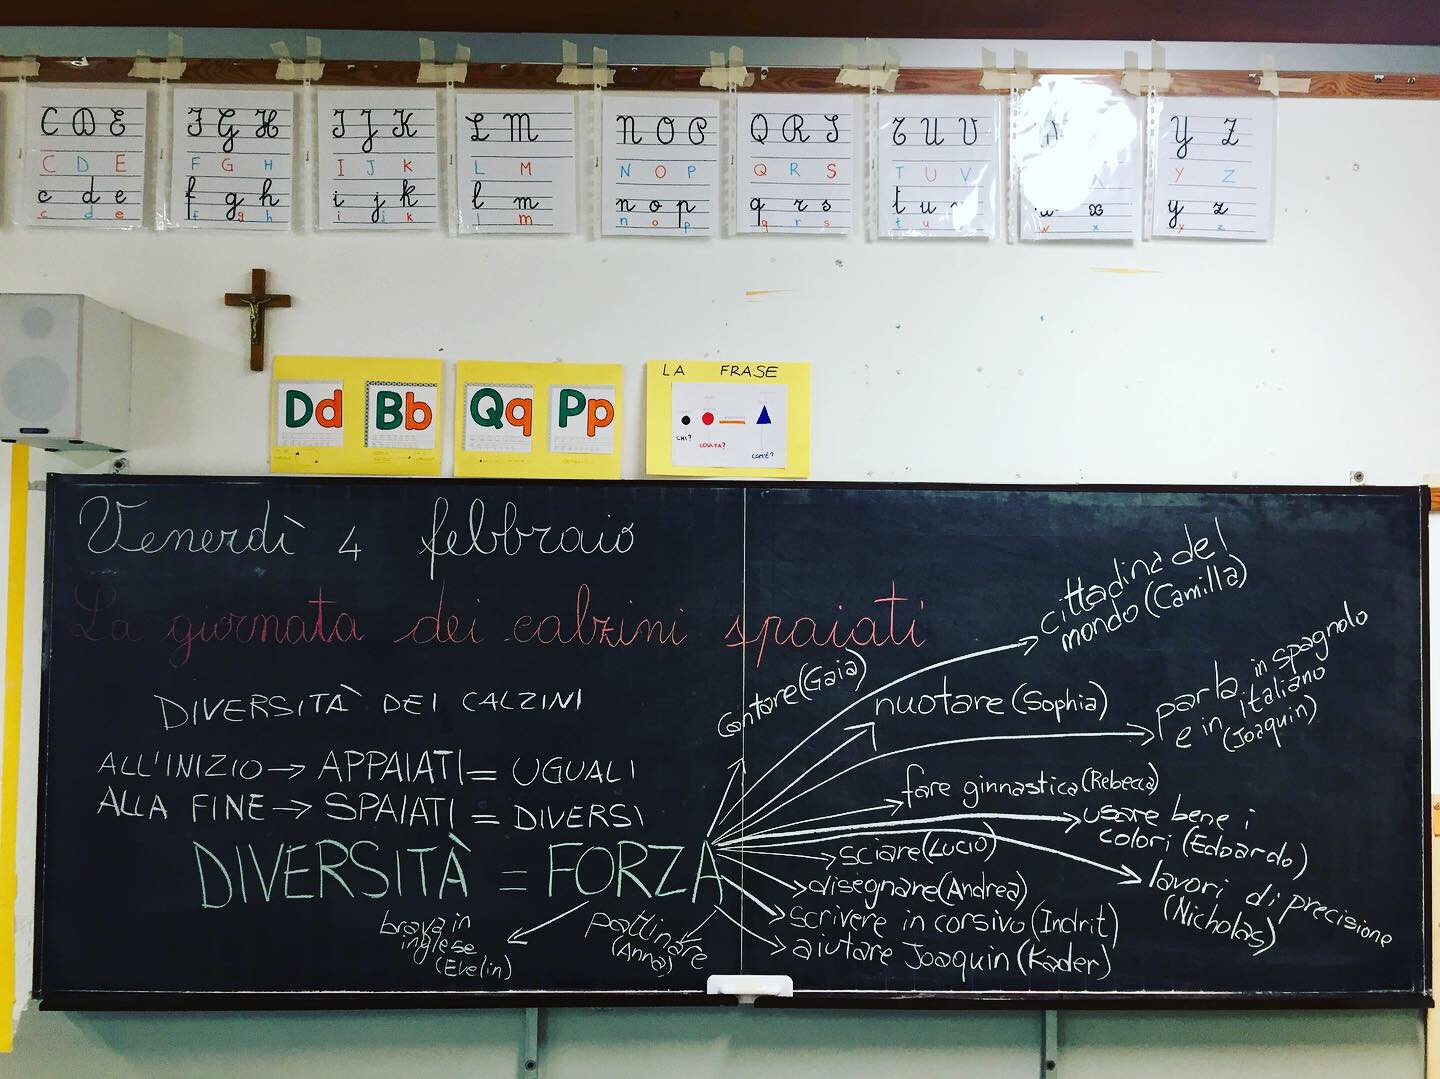 C D E
C D E
c d e
c d e
F G H
F G H
f g h
f g h
I J K
I J K
i j k
i j k
L M
L M
l m
l m
N O P
N O P
n o p
n o p
Q R S
Q R S
q r s
q r s
T U V
T U V
t u
t u
x
w x
Y Z
Y Z
y z
y z
Dd
Bb
Qq
Pp
LA FRASE
CHI?
COSA FA?
COM'È?
Venerdì 4 febbraio
La giornata dei calzini spaiati
DIVERSITÀ DEI CALZINI
ALL'INIZIO → APPAIATI = UGUALI
ALLA FINE → SPAIATI = DIVERSI
DIVERSITÀ = FORZA
brava in
inglese
(Evelin)
pattinare
(Anna)
cantare (Gaia)
cittadina del
mondo (Camilla)
nuotare (Sophia)
parla in spagnolo
e in italiano
(Joaquin)
fare ginnastica (Rebecca)
usare bene i
colori (Edoardo)
lavori di precisione
(Nicholas)
sciare (Lucio)
disegnare (Andrea)
scrivere in corsivo (Indrit)
aiutare Joaquin (Kader)